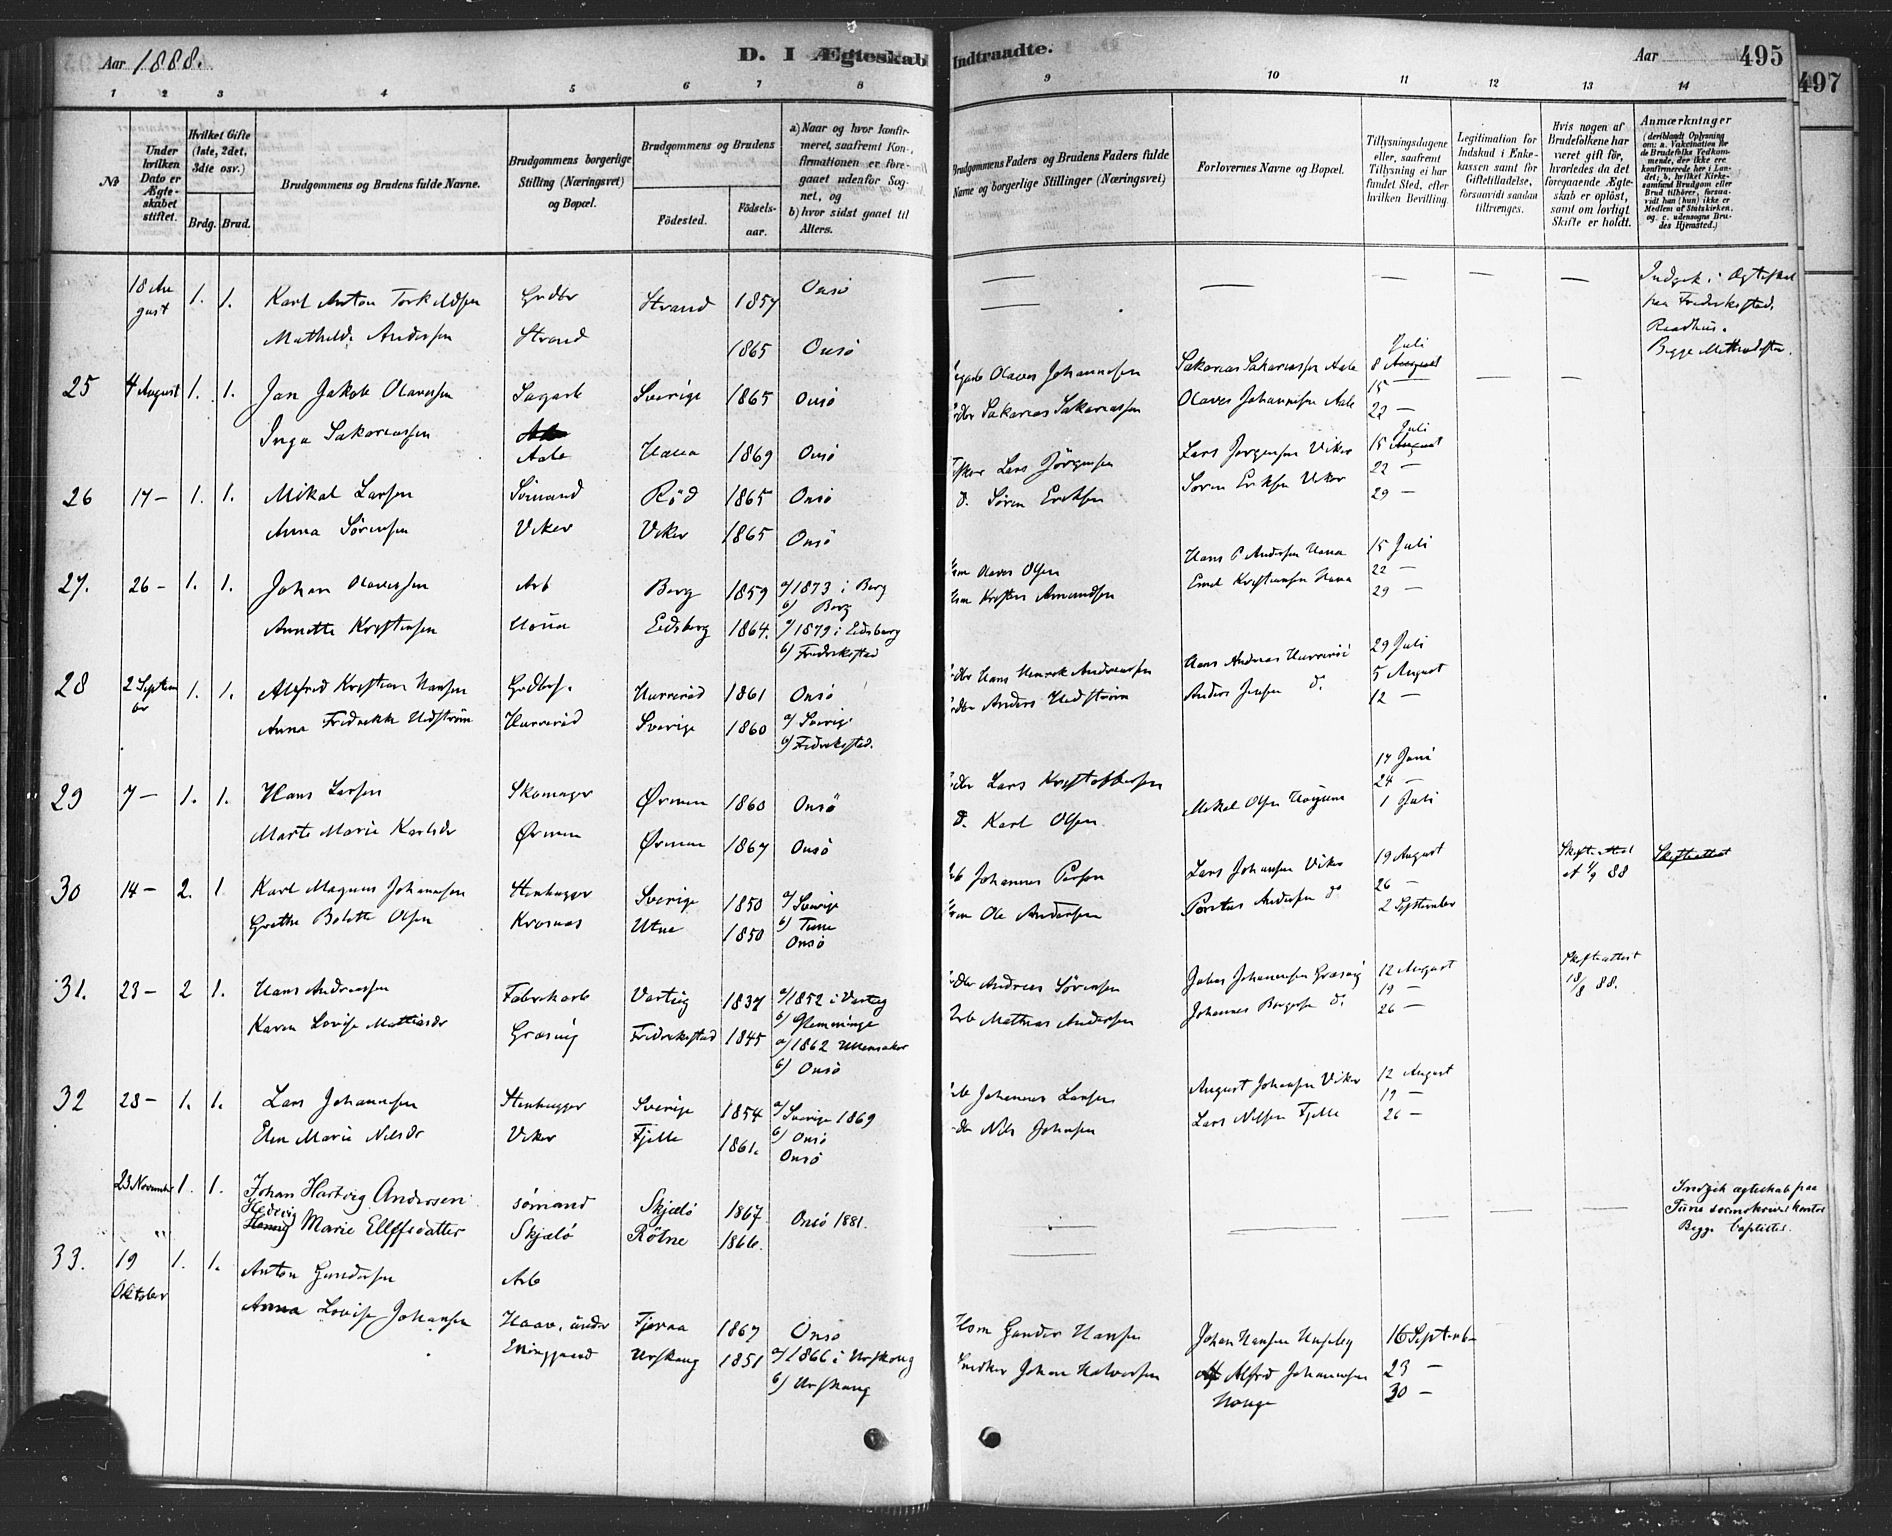 Aar 1888.
D. I Ægteskab Indtraadte.
Aar
495
497
1 2 3 4 5 6 7 8 9 10 11 12 13 14
No
Under hvilken Dato er Ægteskabet stiftet.
Hvilket Gifte (1ste, 2det, 3dte osv.)
Brdg. Brud.
Brudgommens og Brudens fulde Navne.
Brudgommens borgerlige Stilling (Næringsvei) og Bopæl.
Brudgommens og Brudens
Fødested.
Fødselsaar.
a) Naar og hvor konfirmeret, saafremt Konfirmationen er foregaaet udenfor Sognet, og
b) hvor sidst gaaet til Alters.
Brudgommens Faders og Brudens Faders fulde Navne og borgerlige Stillinger (Næringsvei)
Forlovernes Navne og Bopæl.
Tillysningsdagene eller, saafremt Tillysning ei har fundet Sted, efter hvilken Bevilling.
Legitimation for Indskud i Enkekassen samt for Giftetilladelse, forsaavidt saadan tiltrænges.
Hvis nogen af Brudefolkene har været gift før, hvorledes da det foregaaende Ægteskab er opløst, samt om lovligt Skifte er holdt.
Anmærkninger (deriblandt Oplysning om: a. Vakcination for de Brudefolks Vedkommende, der ikke ere konfirmerede her i Landet; b, hvilket Kirkesamfund Brudgom eller Brud tilhører, forsaavidt han (hun) ikke er Medlem af Statskirken. og c. udensogns Brudes Hjemsted.)
18 August 1. 1. Karl Anton Torkildsen Grdbr Strand 1857 Onsö — — — — — Indgik i Ægteskab
Mathilde Andersen Strand 1865 Onsö — paa Frederikstad
Raadhus.
Begge Methodister.
25 4 August 1. 1. Jan Jakob Olavesen Sagarb Sverige 1865 Onsö Olaves Johannesen Sakarias Sakariassen Aale 8 Juli — —
Inga Sakariassen Aale Hana 1869 Onsö Sakarias Sakariassen Olaves Johannesen Aale 15 —
22 —
26 17 — 1. 1. Mikal Larsen Sömand Röd 1865 Onsö Fisker Lars Jörgensen Lars Jörgensen Viker 15 Juli
Anna Sörensen Viker Viker 1865 Onsö d. Sören Eriksen Sören Eriksen Viker 22 —
29 —
27. 26 — 1. 1. Johan Olavessen Arb Borg 1859 a/ 1873 i Borg b) Borg Olaves Olsen Hans P Andersen Hana 15 Juli
Annette Kristensen Eidsberg 1864. a/ 1879 i Eidsberg b) Fredrikstad Kristen Amundsen Emil Kristiansen Hana 22 —
29 —
28 2 September 1. 1. Alfred Kristian Hansen Hurrerød 1861 Onsö Hans Henrik Andreassen Hans Andreas Hurreröd 29 Juli
Anna Fredrikke Hedström Hurreröd Sverige 1860 a/ Sverige b) Fredrikstad. Anders Hedström Anders Jensen d. 5 August
12 —
29 7 — 1. 1. Hans Larsen Skomager Ørmen 1860 Onsö Lars Kristoffersen 17 Juni
24 —
Marte Marie Karlsdr Ørmen Ørmen 1867 Onsö d. Karl Olsen Mikal Olsen 1 Juli
30 14 — 2. 1. Karl Magnus Johannesen Stenhugger Sverige 1850 a/ Sverige b) Tune Johannes Persen Lars Johansen Viker 19 August Skifteattest 1/9 88 Skifteattest
Grethe Bolette Olsen Krosnes Utne 1850 Onsö Ole Andersen Andersen do 26 —
2 September
31. 23 — 2 1. Hans Andreassen Fabrikarb Varteig 1837 a/ 1852 i Varteig b) Glemminge Andreas Sörensen Johannesen Græsvig 12 August Skifteattest 18/8 88.
Karen Lovise Mathiasdr Græsvig Fredrikstad 1845 a/ 1862 Ullensaker b) Onsö Mathias Andersen Johannes Borgersen d. 19 —
26 —
32 28 — 1. 1. Lars Johannesen Stenhugger Sverige 1854 a/ Sverige 1869 b) Onsö Johannes Larsen August Johansen Viker 12 August
Elen Marie Nilsdr Viker Fjelle 1861. Onsö Nils Johansen Lars Nilsen Fjelle 19 —
26 —
23 November 1. 1. Johan Hartvig Andersen sømand Skjælø 1867. Onsö 1881. — — — — — Indgik ægteskab paa
" Hedevig Marie Elleffsdatter Skjælø Rötne 1866. — Tune sorenskriverkontor
Begge baptister.
33. 19 Oktober 1. 1. Anton Gundersen Arb Fjeraa 1867 Onsö Hsm Gunder Hansen Johan Hansen 16 Septemb
Anna Lovise Johansen under Urskoug 1851 a/ 1866 i Urskoug b) Urskoug Snedker Johan Halvorsen Alfred Johannesen 23 —
Houge 30 —